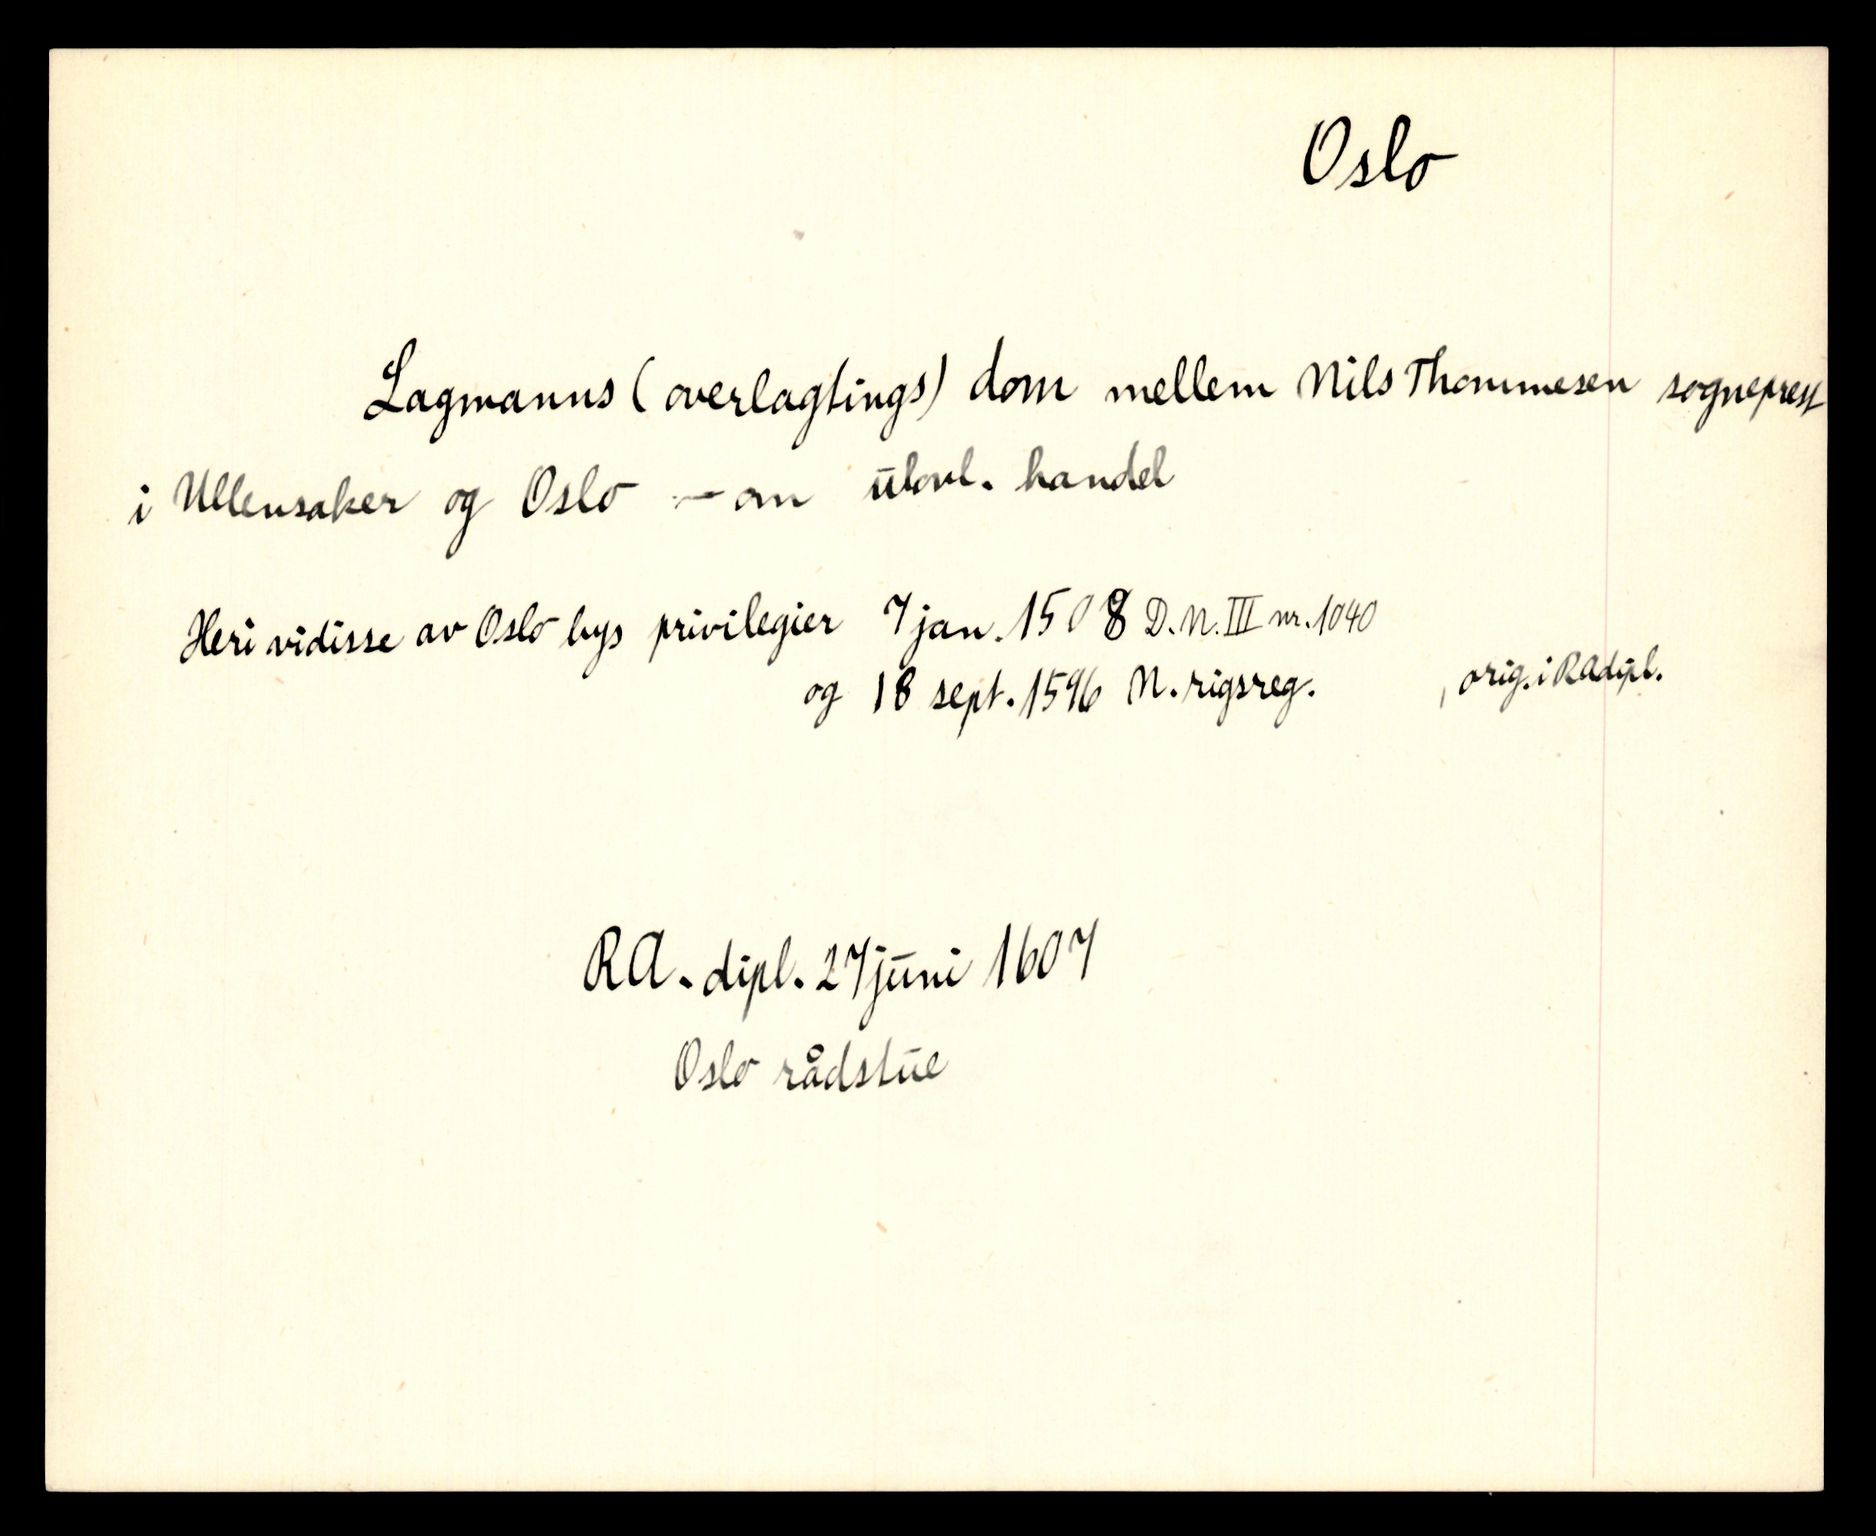 Oslo
Lagmanns (overlagtings) dom mellem Nils Thommesen sogneprest
i Ullensaker og Oslo - om ulovl. handel
Heri vidisse av Oslo bys privilegier 7 jan. 1508 D.N. III nr. 1040
og 18 sept. 1596 N. rigsreg. , orig. i RAdipl.
RA. dipl. 27 juni 1607
Oslo rådstue